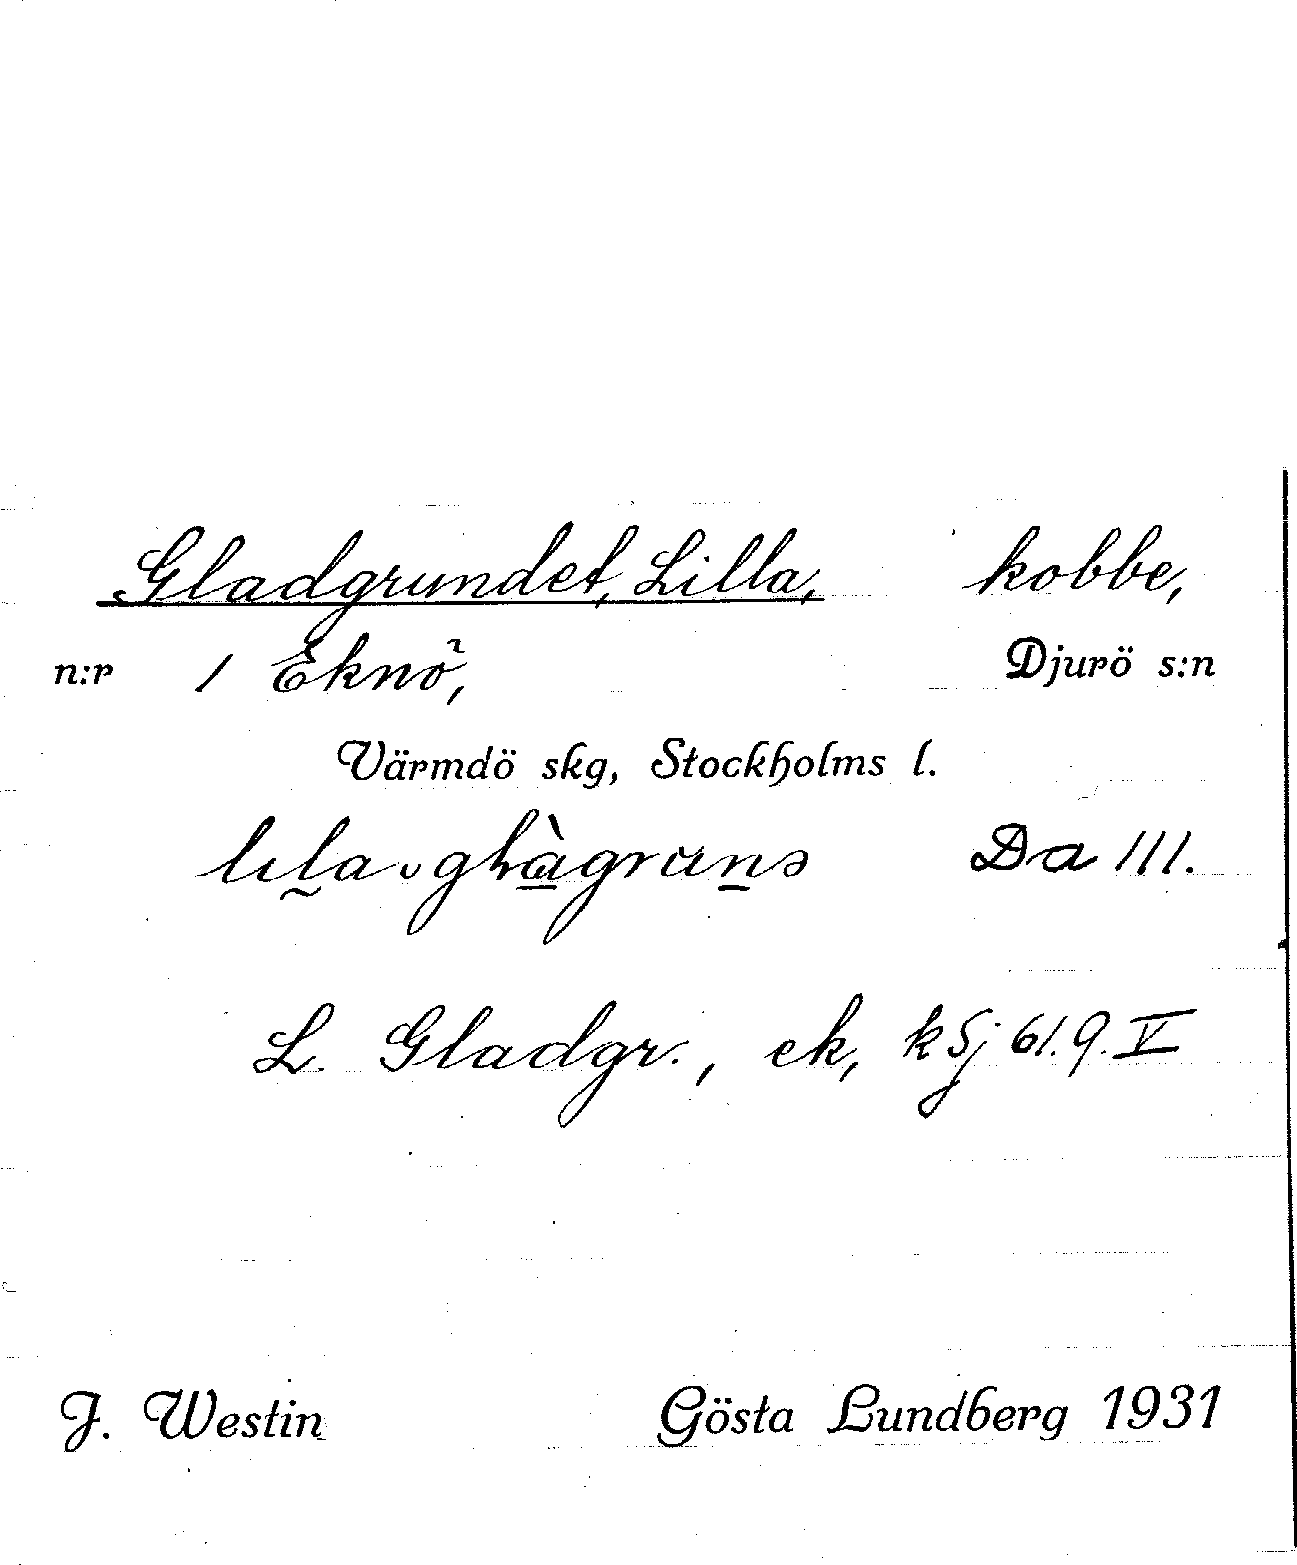 Gladgrundet, Lilla, kobbe,
n:r 1 Eknö, Djurö s:n
Värmdö skg, Stockholms l.
Da III.
L. Gladgr., ek, kSj 61.9.V
J. Westin Gösta Lundberg 1931